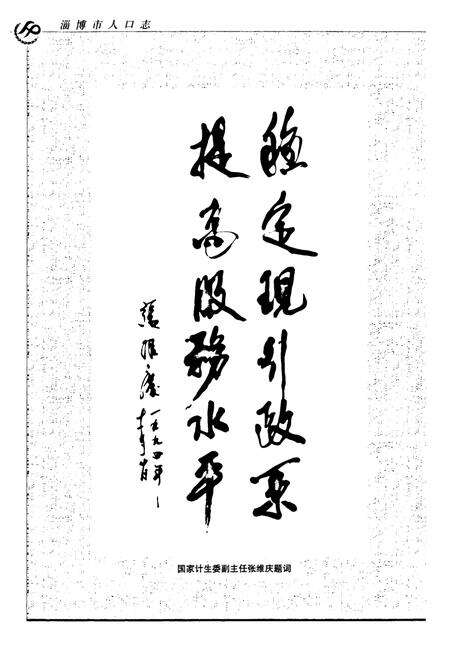 淄博市人口志
稳定现行政策
提高服务水平
张维庆 一九九四年
十月
国家计生委副主任张维庆题词